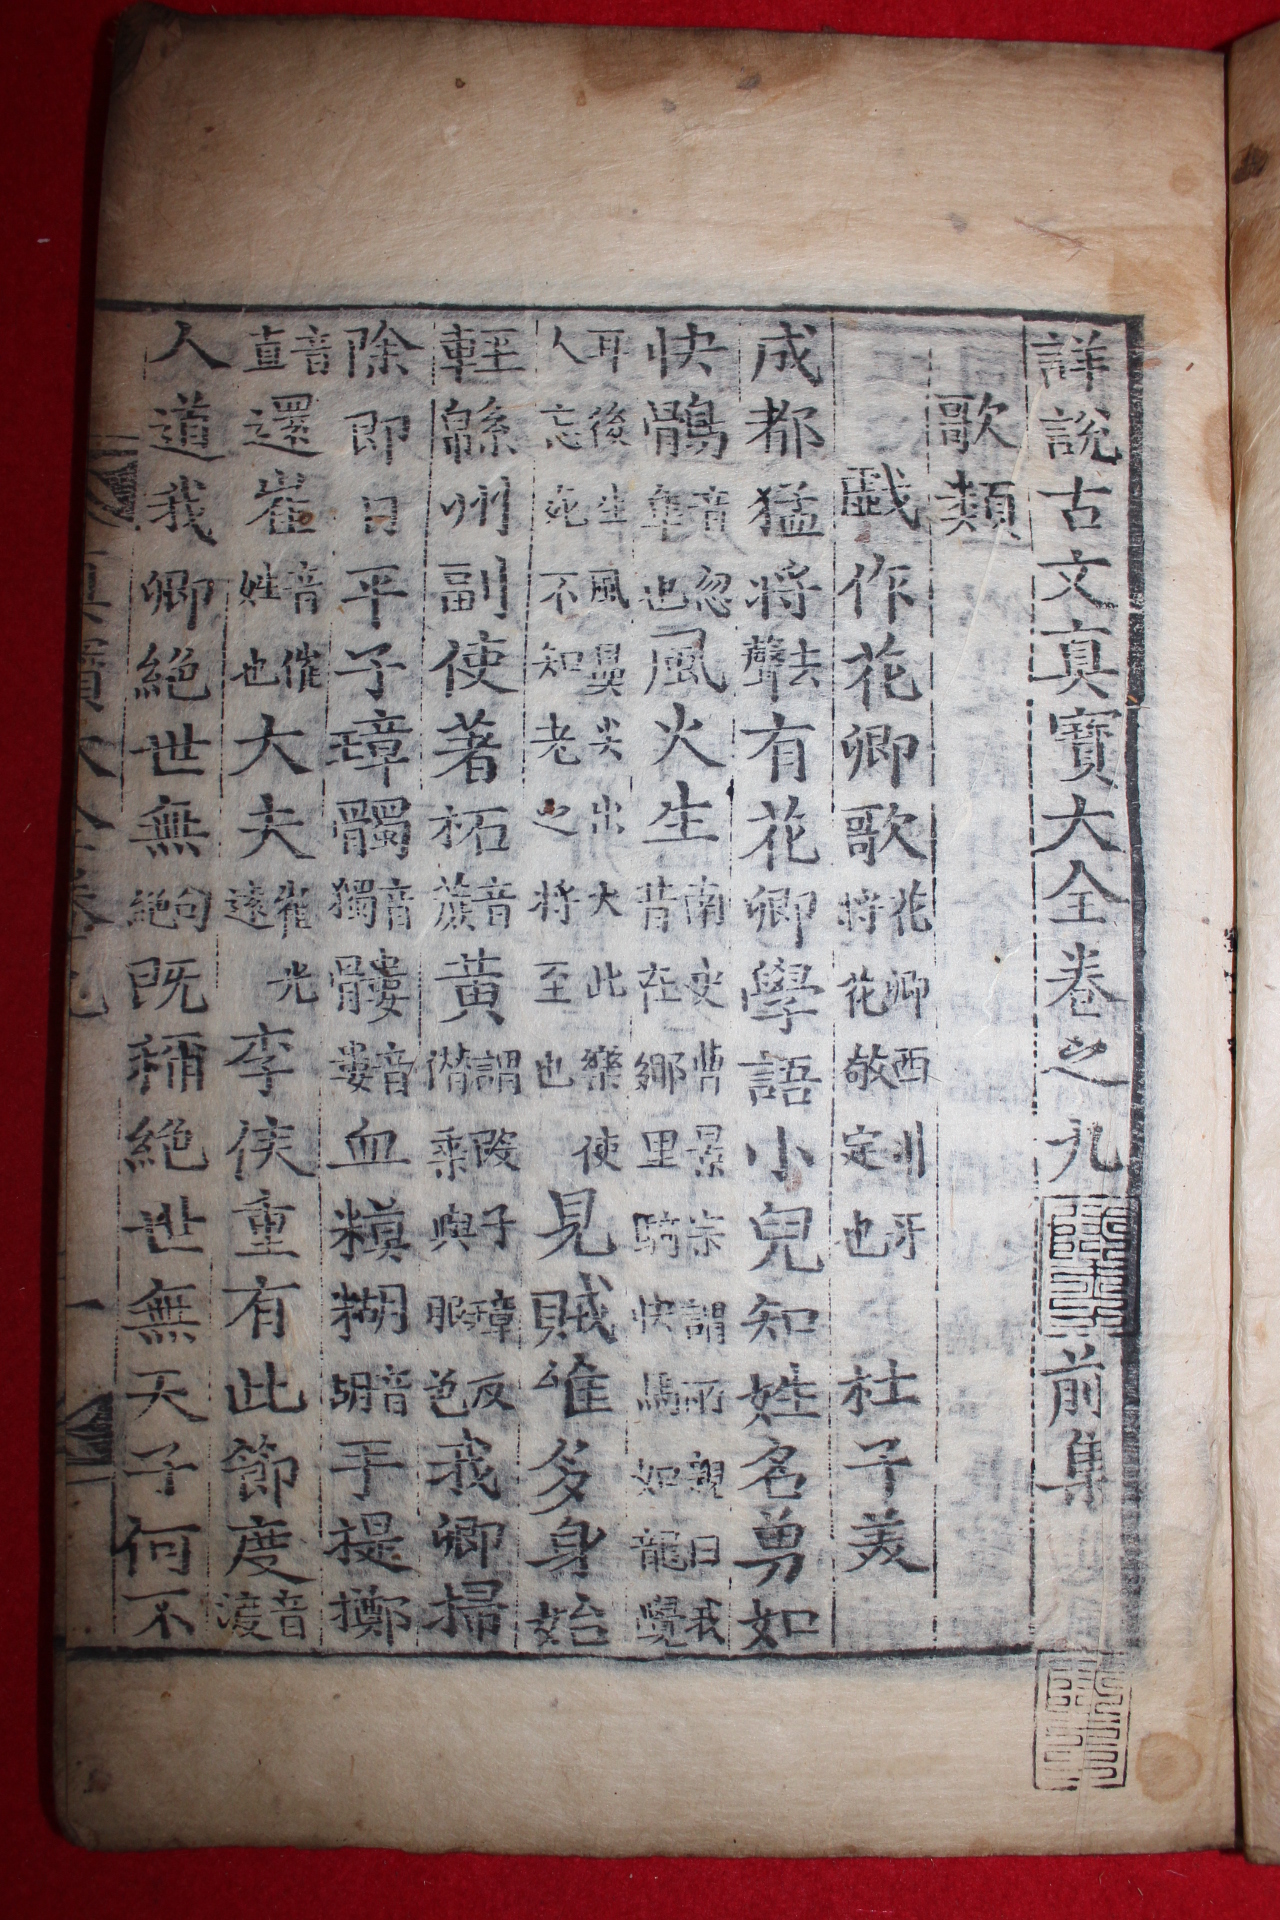 詳說古文眞寶大全卷之九 前集
歌類
戲作花卿歌 花卿西川牙將花敬定也 杜子美
成都猛將去聲有花卿學語小兒知姓名勇如
快鶻音忽隼也風火生南史曹景宗謂所親曰我昔在鄉里騎快馬如龍覺
耳後生風鼻尖出火此樂使人忘死不知老之將至也見賊唯多身始
輕緜州副使著柘音蔗黃謂段子璋反僭乘輿服色我卿掃
除即日平子璋髑音獨髏音婁血糢糊音胡手提擲
音直還崔音催姓也大夫崔光遠李侯重有此節度音渡
人道我卿絕世無句絕既稱絕世無天子何不